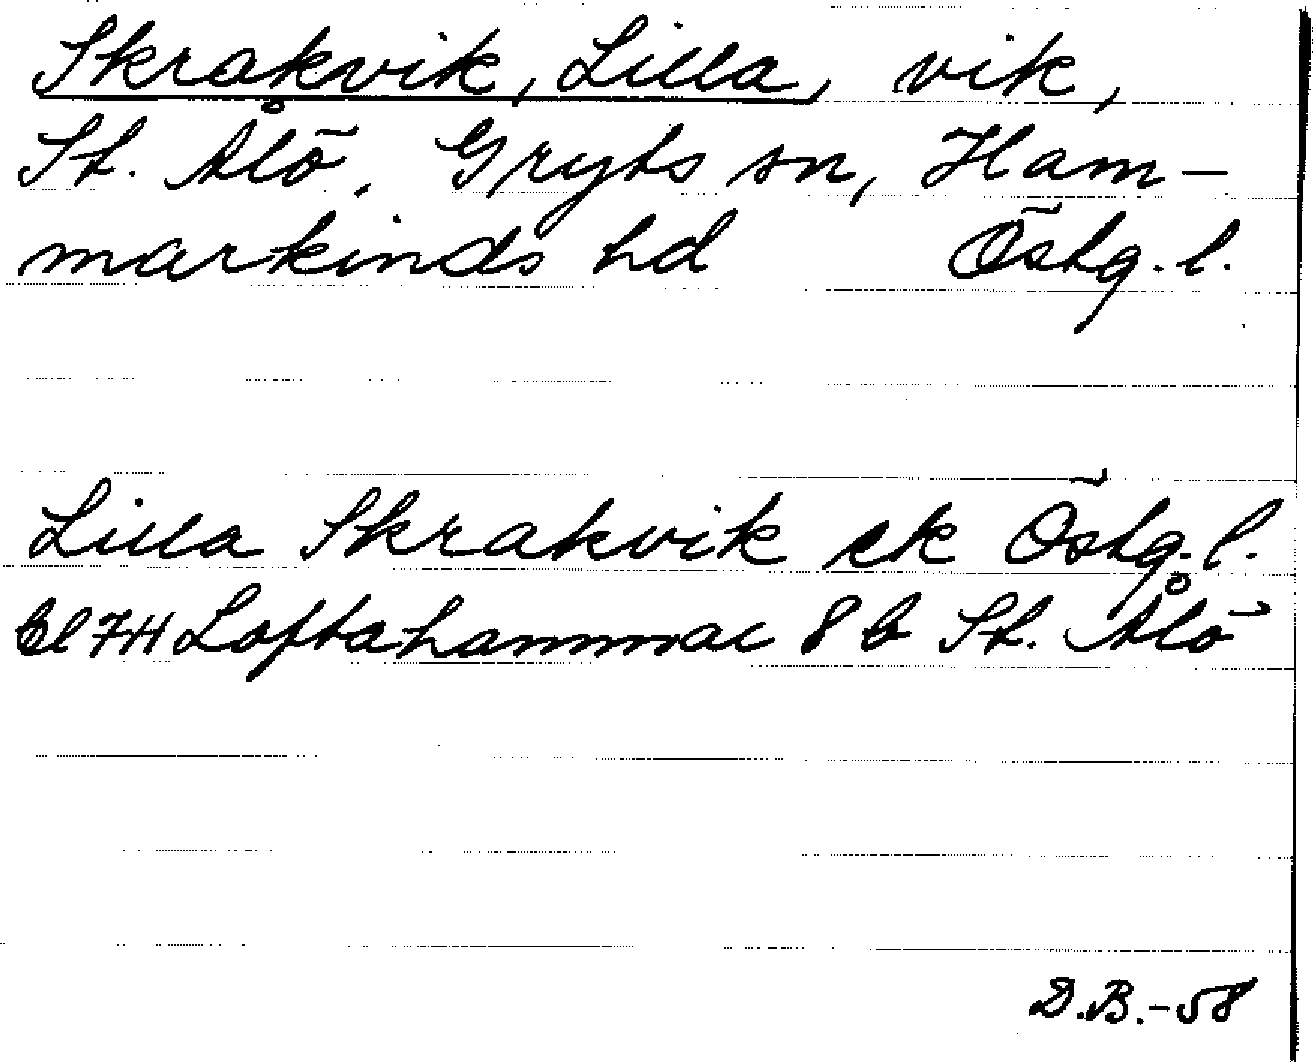 Skrakvik, Lilla, vik,
St. Ålö, Gryts sn, Ham-
markinds hd Östg. l.
Lilla Skrakvik ek Östg. l.
bl 7H Loftahammar 8 b St. Ålö
D.B.-58